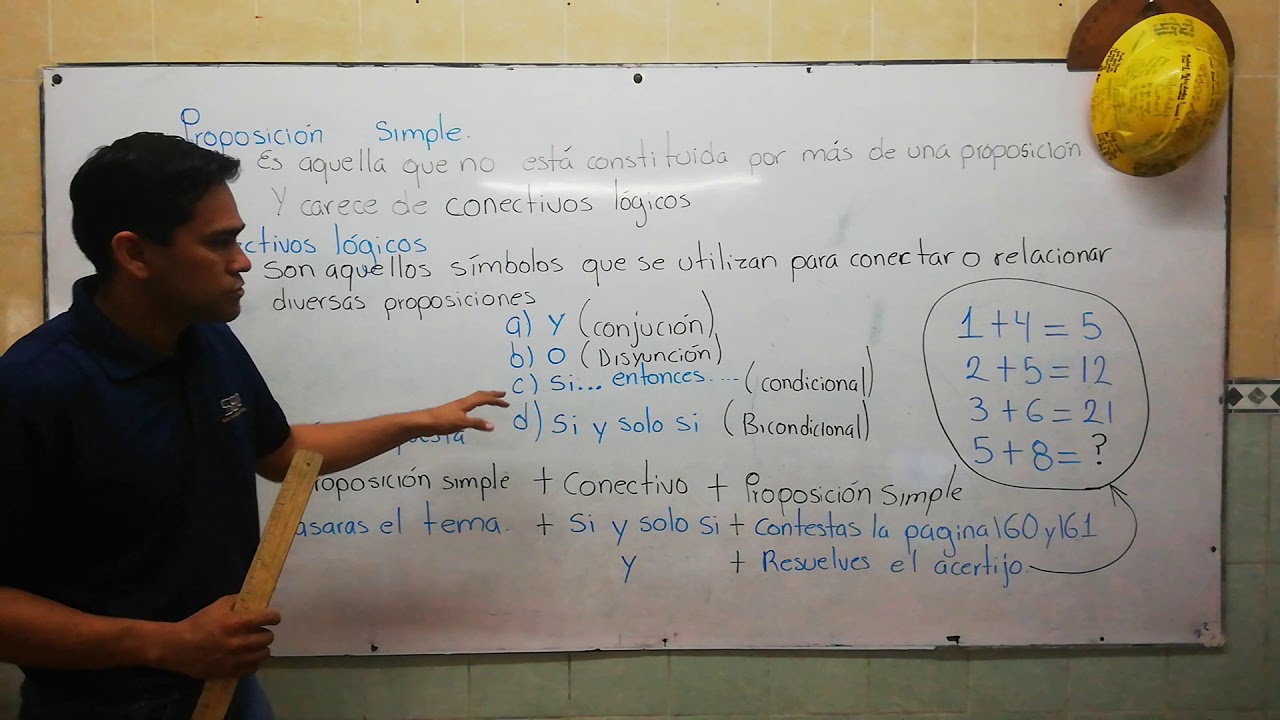 Proposición Simple.
Es aquella que no está constituida por más de una proposición
Y carece de conectivos lógicos
ctivos lógicos
Son aquellos símbolos que se utilizan para conectar o relacionar
diversas proposiciones
a) Y (conjución)
b) O (Disyunción)
c) Si... entonces.... (condicional)
d) Si y solo si (Bicondicional)
uesta
roposición simple + Conectivo + Proposición Simple
asaras el tema. + Si y solo si + Contestas la pagina 160 y 161
y + Resuelves el acertijo
1+4=5
2+5=12
3+6=21
5+8=?